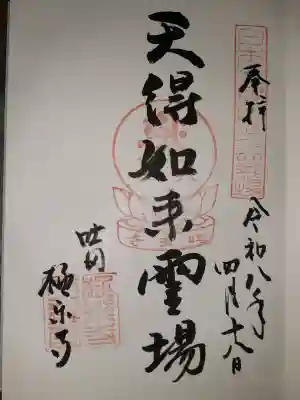 奉拝
令和八年四月十八日
天得如来霊場
吐田
極楽寺